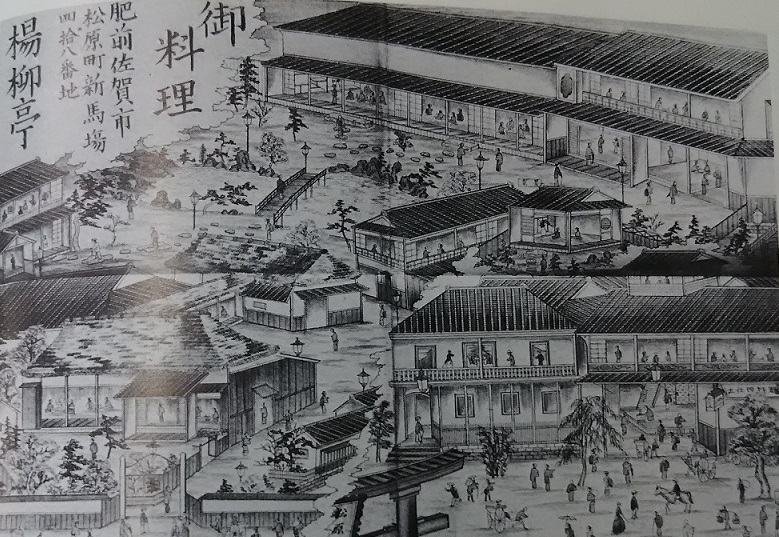 御料理
肥前佐賀市
松原町新馬場
四拾八番地
楊柳亭